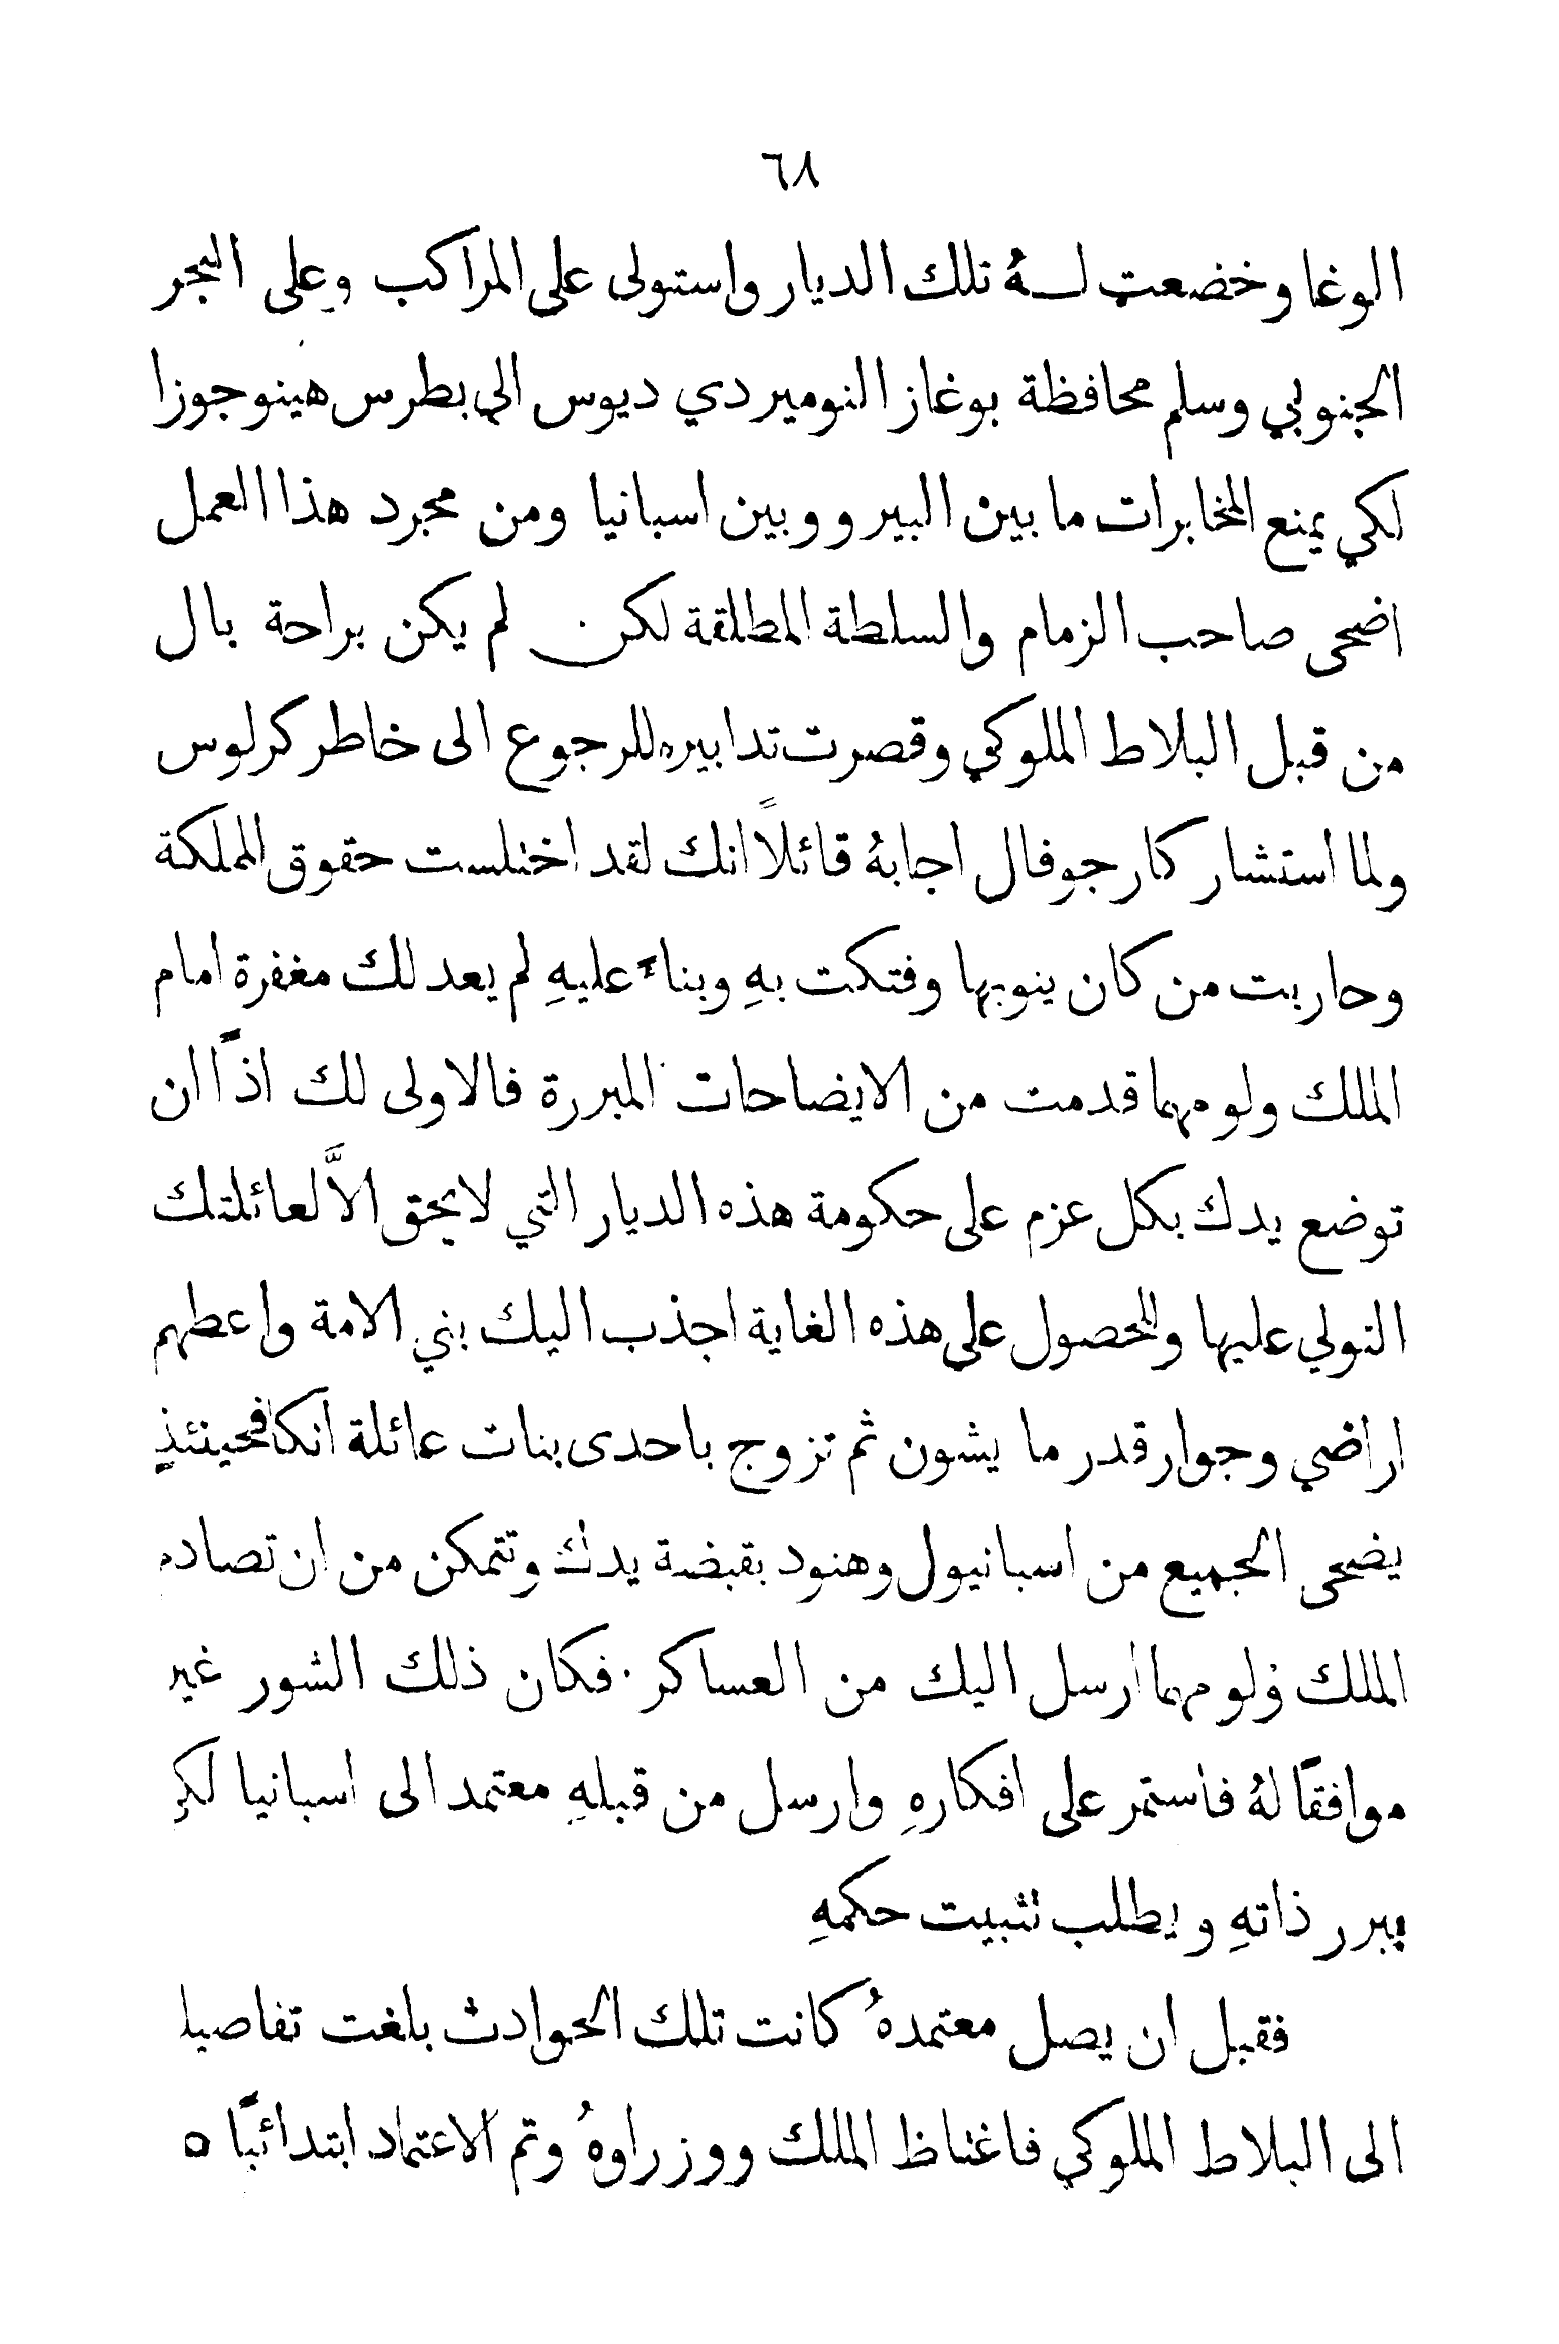 ٦٨
الوغا وخضعت لـهُ تلك الديار واستولى على المراكب وعلى البحر
الجنوبي وسلم محافظة بوغاز النوميردي ديوس الى بطرس هينوجوزا
لكي يمنع المخابرات ما بين البيرو وبين اسبانيا ومن مجرد هذا العمل
اضحى صاحب الزمام والسلطة المطلقة لكن لم يكن براحة بال
من قبل البلاط الملوكي وقصرت تدابيره للرجوع الى خاطر كرلوس
ولما استشار كارجوفال اجابهُ قائلاً انك لقد اختلست حقوق المملكة
وحاربت من كان ينوبها وفتكت بهِ وبناءً عليهِ لم يعد لك مغفرة امام
الملك ولو مهما قدمت من الايضاحات المبررة فالاولى لك اذًا ان
توضع يدك بكل عزم على حكومة هذه الديار التي لا يحق الاَّ لعائلتك
التولي عليها والحصول على هذه الغاية اجذب اليك بني الامة واعطهم
اراضي وجوار قدر ما يشون ثم تزوج باحدى بنات عائلة انكا فحينئذٍ
يضحى الجميع من اسبانيول وهنود بقبضة يدك وتتمكن من ان تصادم
الملك ولو مهما ارسل اليك من العساكر. فكان ذلك الشور غير
موافقًا لهُ فاستمر على افكارهِ وارسل من قبلهِ معتمد الى اسبانيا لكي
يبرر ذاتهِ ويطلب تثبيت حكمهِ
فقبل ان يصل معتمدهُ كانت تلك الحوادث بلغت تفاصيل
الى البلاط الملوكي فاغتاظ الملك ووزراوهُ وتم الاعتماد ابتدائيًا